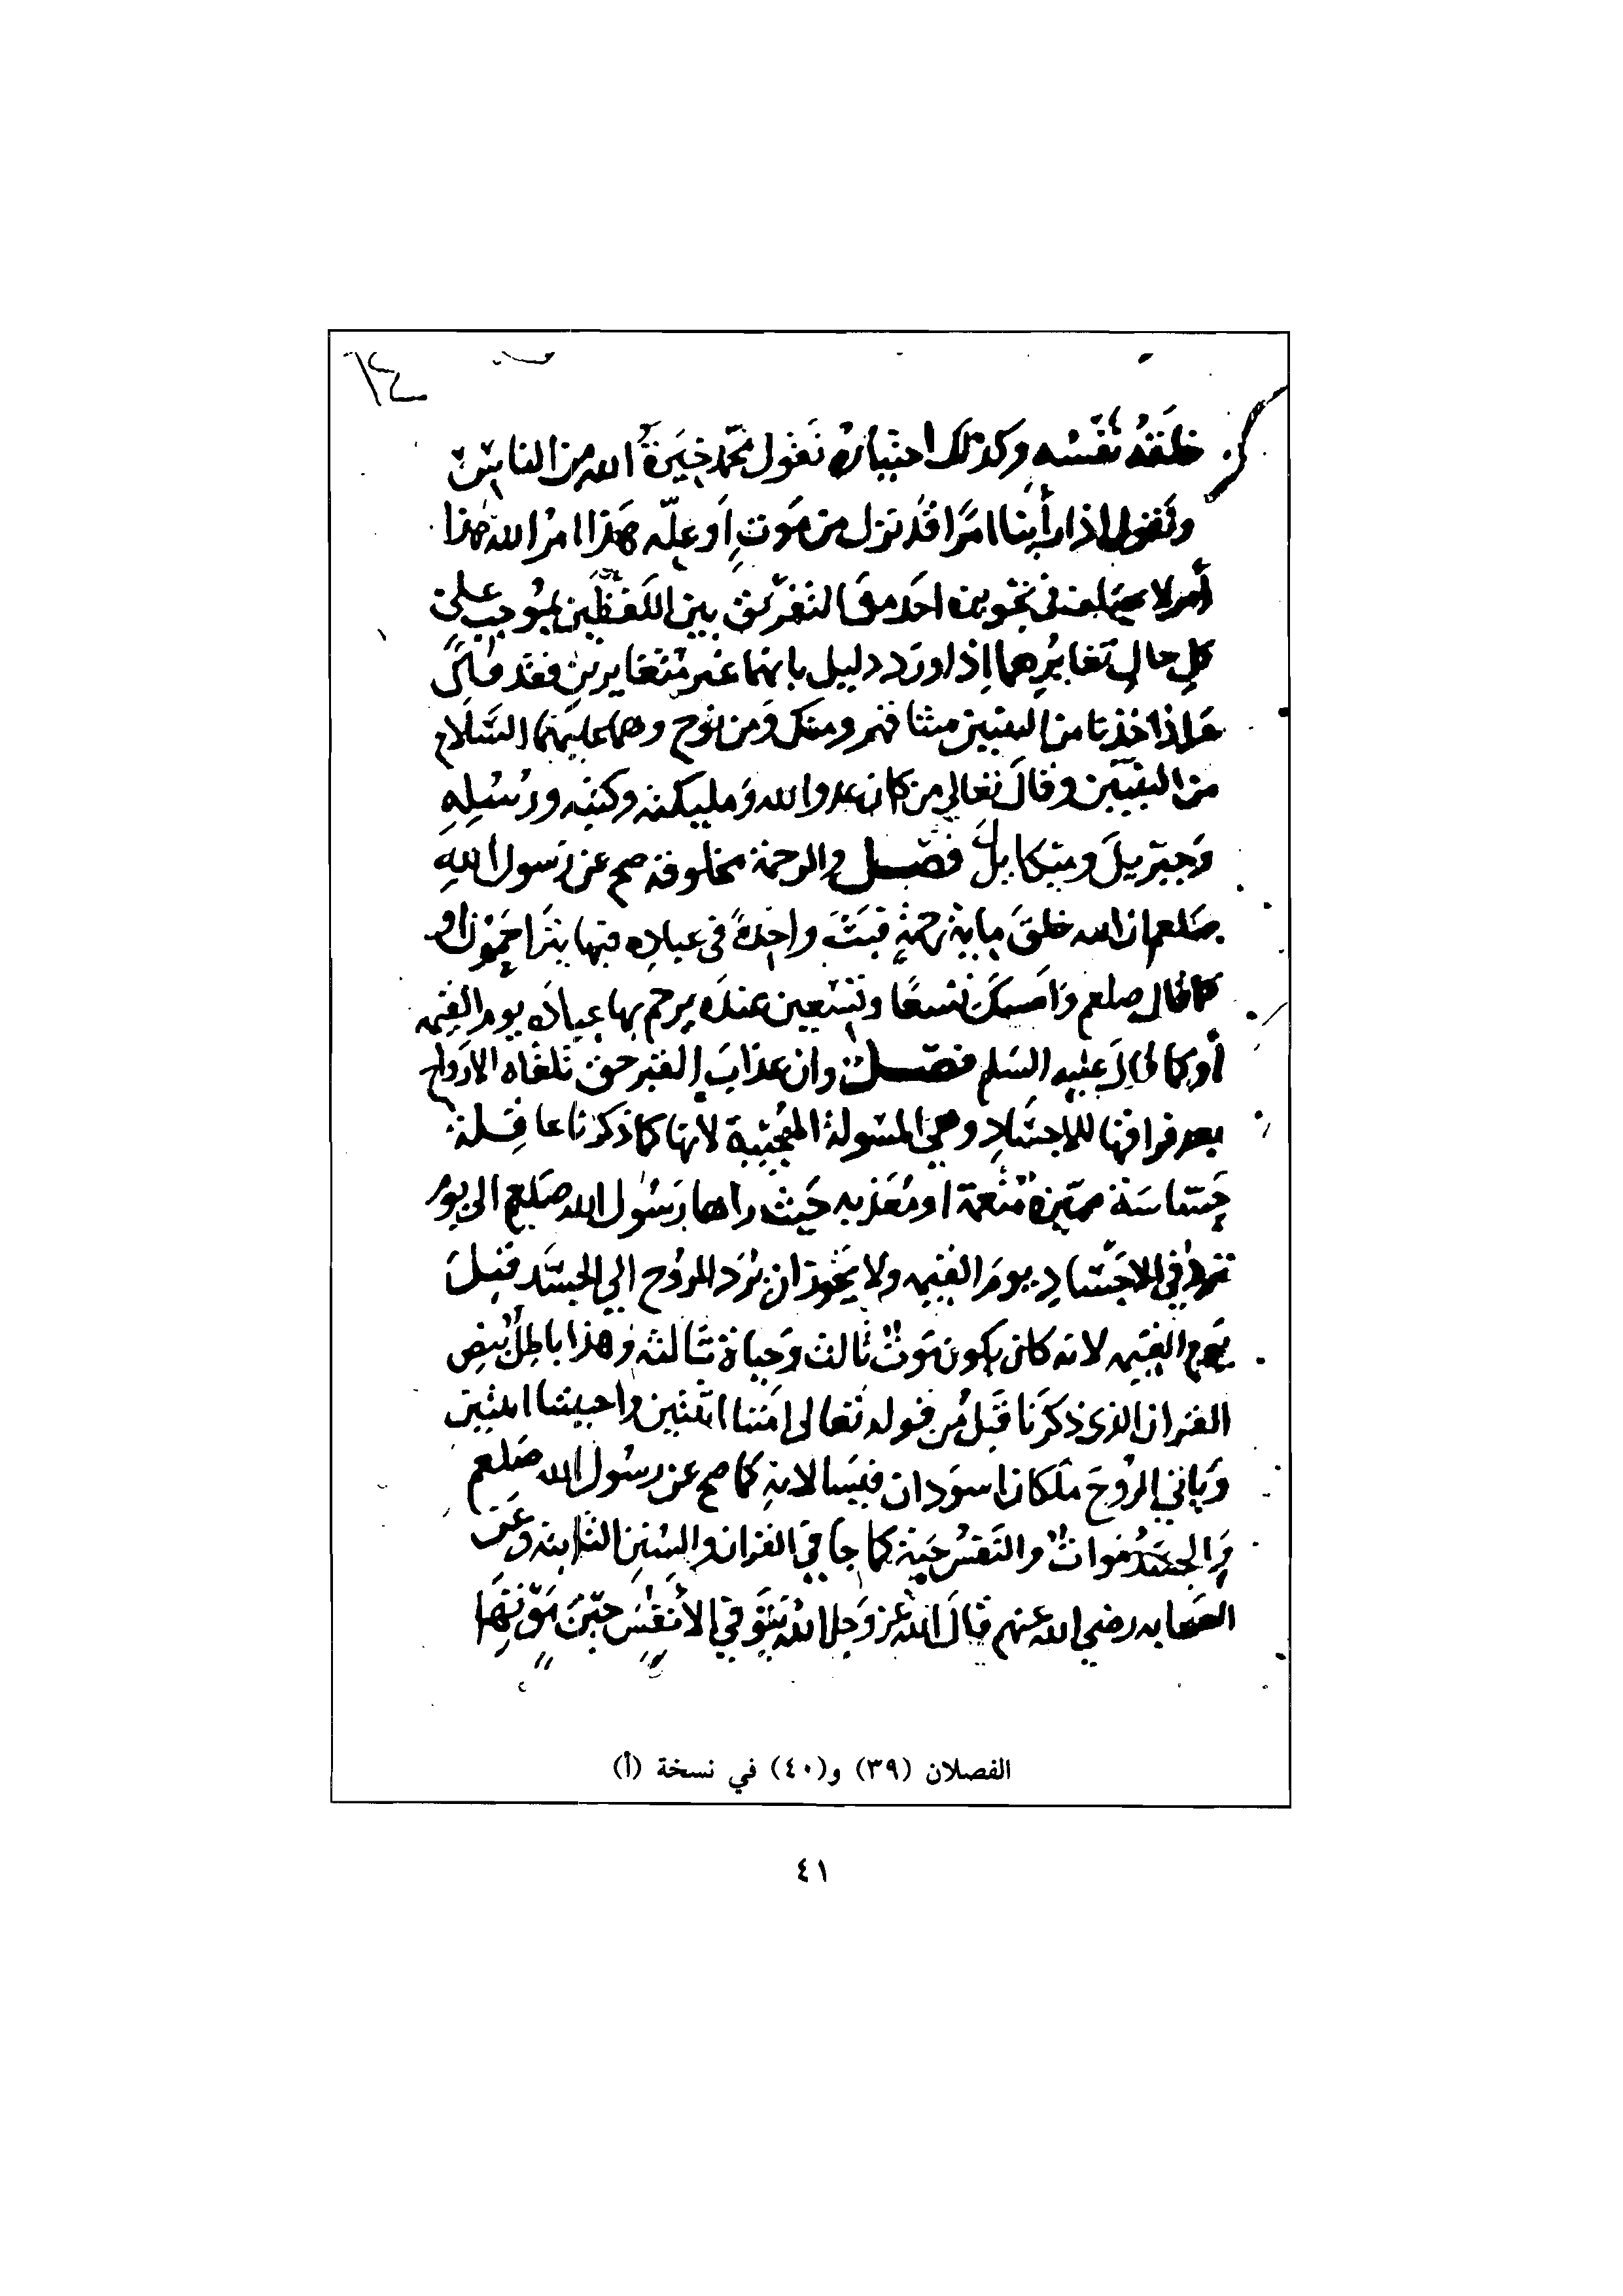 ١٤
خلقه نفسه وكذلك اختياره نقول محمد خيرة الله من الناس
ونقول اذا رأينا امرًا قد نزل من موت او علّه هذا امر الله هذا
أمر لا يختلف في تجويزه احد مع التفريق بين اللفظين يوجب على
كل حال تغايرهما إذا ورد دليل بانهما غير متغايرين فقد قال
واذ اخذنا من النبيين ميثاقهم ومنك ومن نوح وهما عليهما السلام
من النبيين وقال تعالى من كان عدوا لله ومليكته وكتبه ورسله
وجبريل وميكايل فصل والرحمة مخلوقة صح عن رسول الله
صلعم ان الله خلق ماية رحمة فبث واحدة في عباده فبها يتراحمون او
كما قال صلعم وامسك تسعا وتسعين عنده يرحم بها عباده يوم القيمه
أو كما قال عليه السلم فصل وان عذاب القبر حق تلقاه الارواح
بعد فراقها للاجساد وهي المسولة المجيبة لانها كما ذكرنا عاقلة
حساسة مميزة منعمة او معذبه حيث راها رسول الله صلعم الى يوم
ترد في الاجساد يوم القيمه ولا يجوز ان ترد الروح الي الجسد قبل
يوم القيمه لانه كان يكون موت ثالث وحياة ثالثه وهذا باطل بنص
القران الذي ذكرنا قبل من قوله تعالى امتنا اثنتين واحييتنا اثنتين
وياتي الروح ملكان اسودان فيسالانه كما صح عن رسول الله صلعم
والجسد موات والنفس حية كما جا في القران والسنن الثابته وعن
الصحابه رضي الله عنهم قال الله عز وجل الله يتوفي الأنفس حين موتها
الفصلان (٣٩) و(٤٠) في نسخة (أ)
٤١